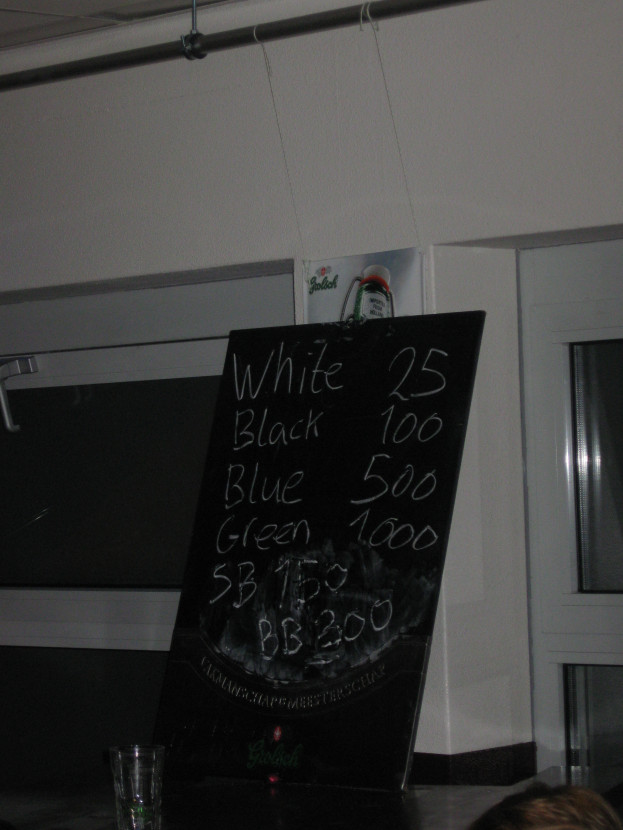 Grolsch
White 25
Black 100
Blue 500
Green 1000
SB 150
BB 300
VAKMANSCHAP & MEESTERSCHAP
Grolsch